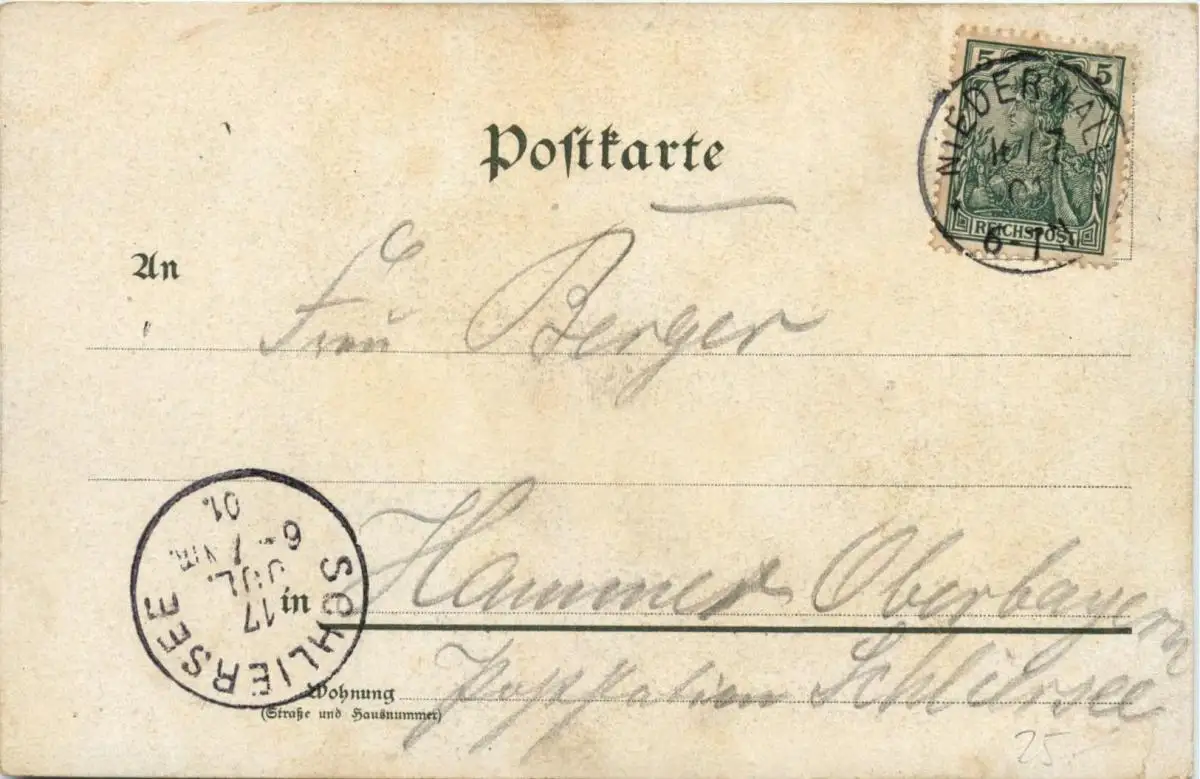 5 5
NIEDERWALD
7
01
6-7
REICHSPOST
Postkarte
An
Frau Berger
SCHLIERSEE
17 JUL.
6-7 NM.
01.
in
Hammer Oberbayern
Poststation Schliersee
Wohnung
(Straße und Hausnummer)
25.-